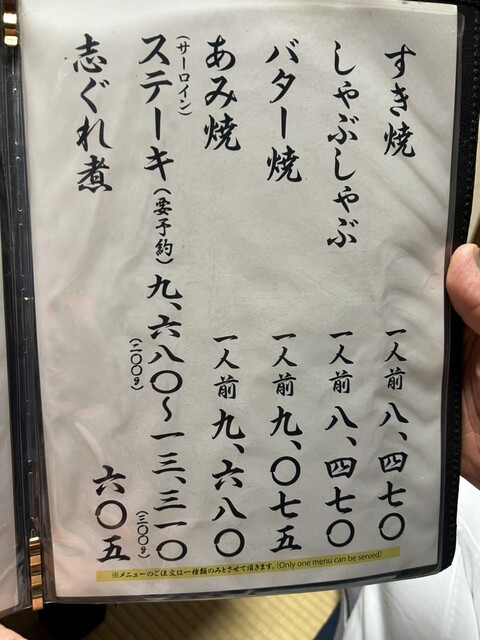 すき焼 一人前 八、四七〇
しゃぶしゃぶ 一人前 八、四七〇
バター焼 一人前 九、〇七五
あみ焼 一人前 九、六八〇
(サーロイン)
ステーキ(要予約) 九、六八〇〜一三、三一〇
(二〇〇g) (三〇〇g)
志ぐれ煮 六〇五
※メニューのご注文は一種類のみとさせて頂きます。(Only one menu can be served)